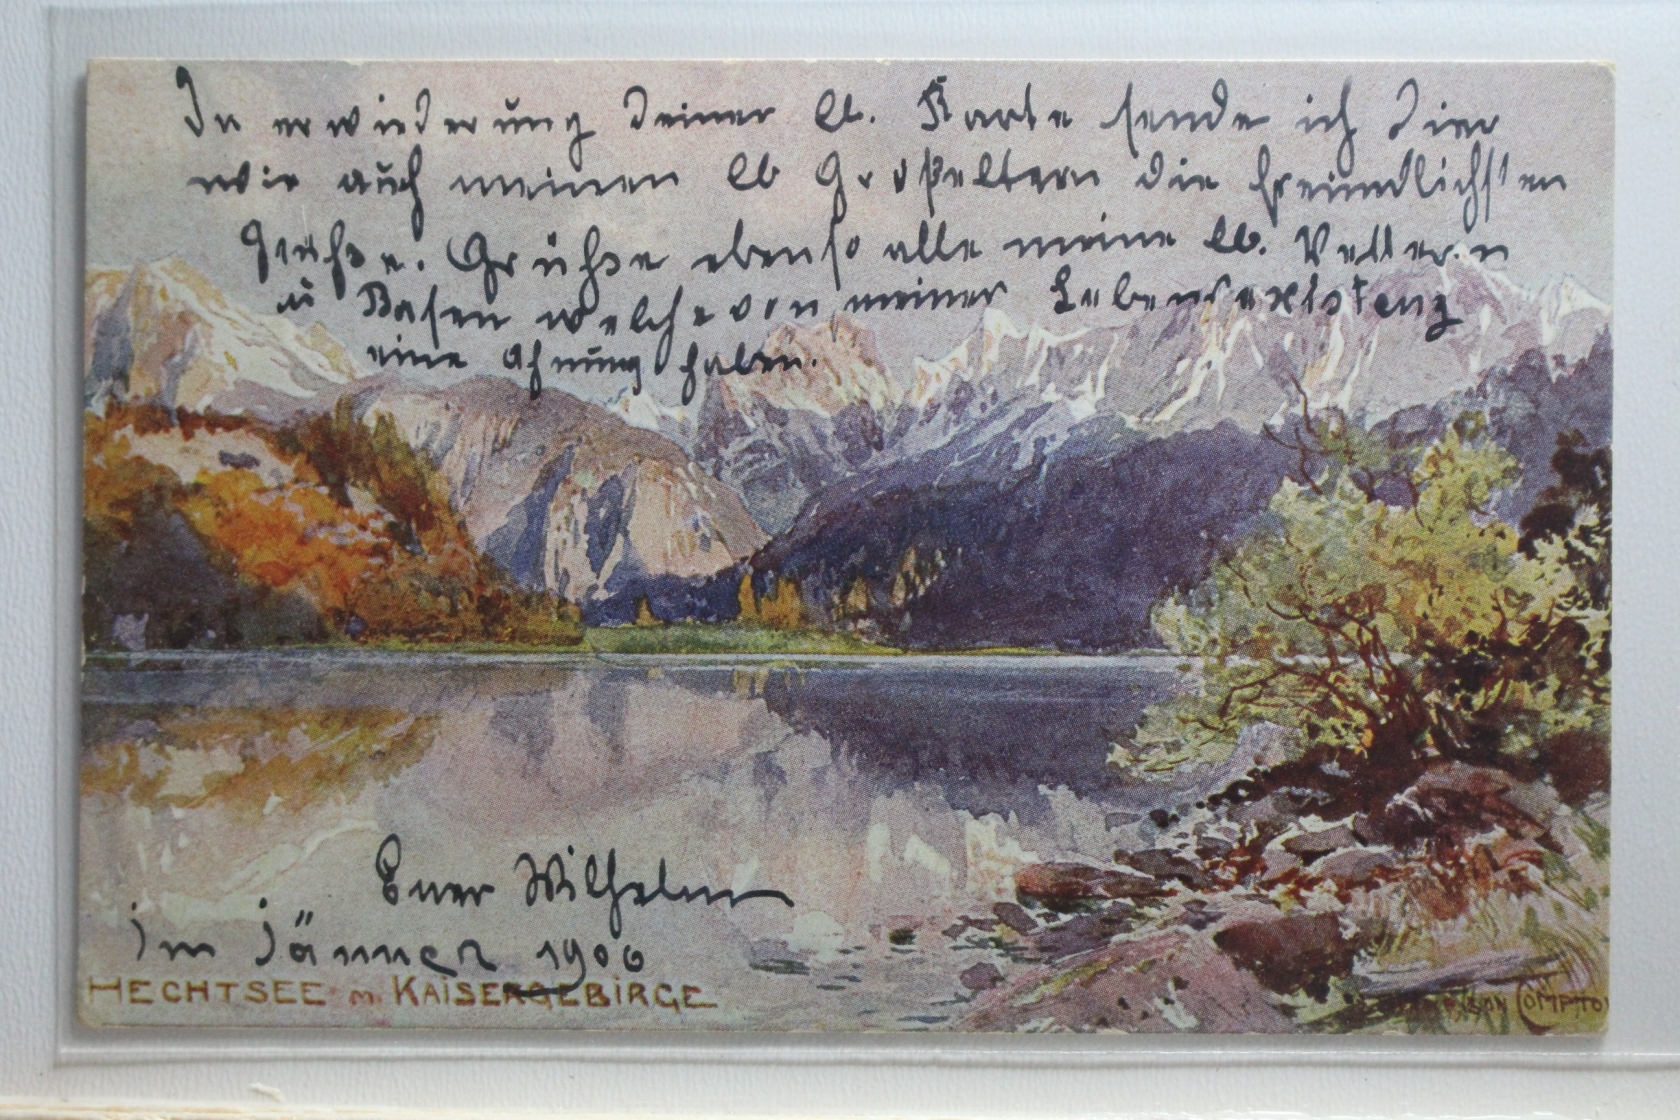 In erwiederung Deiner lb. Karte sende ich Dier
wie auch meinen lb Großeltern die freundlichsten
Grüße. Grüße ebenso alle meine lb. Vettern
u Basen welche von meiner Lebensexistenz
eine Ahnung haben.
Euer Wilhelm
im Jänner 1906
HECHTSEE m. KAISERGEBIRGE
COMPTON